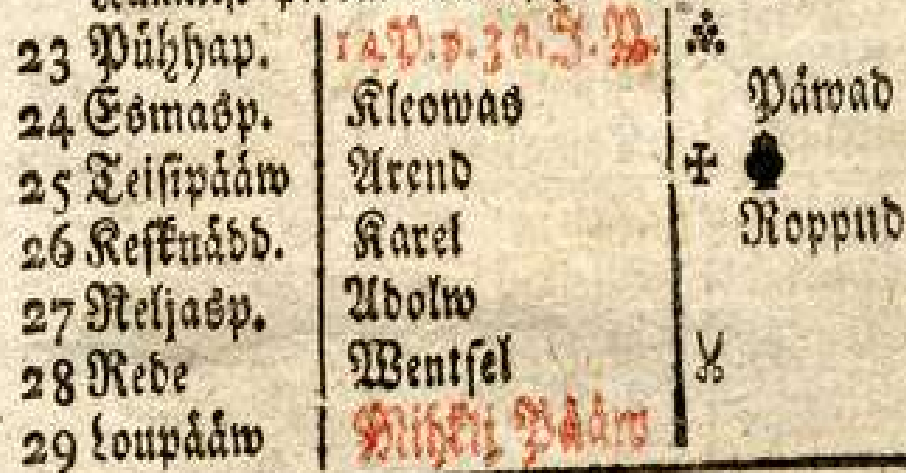 23 Pühhap. 12 P. p. 3 a. J. P.
24 Esmasp. Kleowas Päwad
25 Teisipääw Arend
26 Kesknädd. Karel Roppud
27 Neljasp. Adolw
28 Rede Wentsel
29 Loupääw Mihkli Pääw